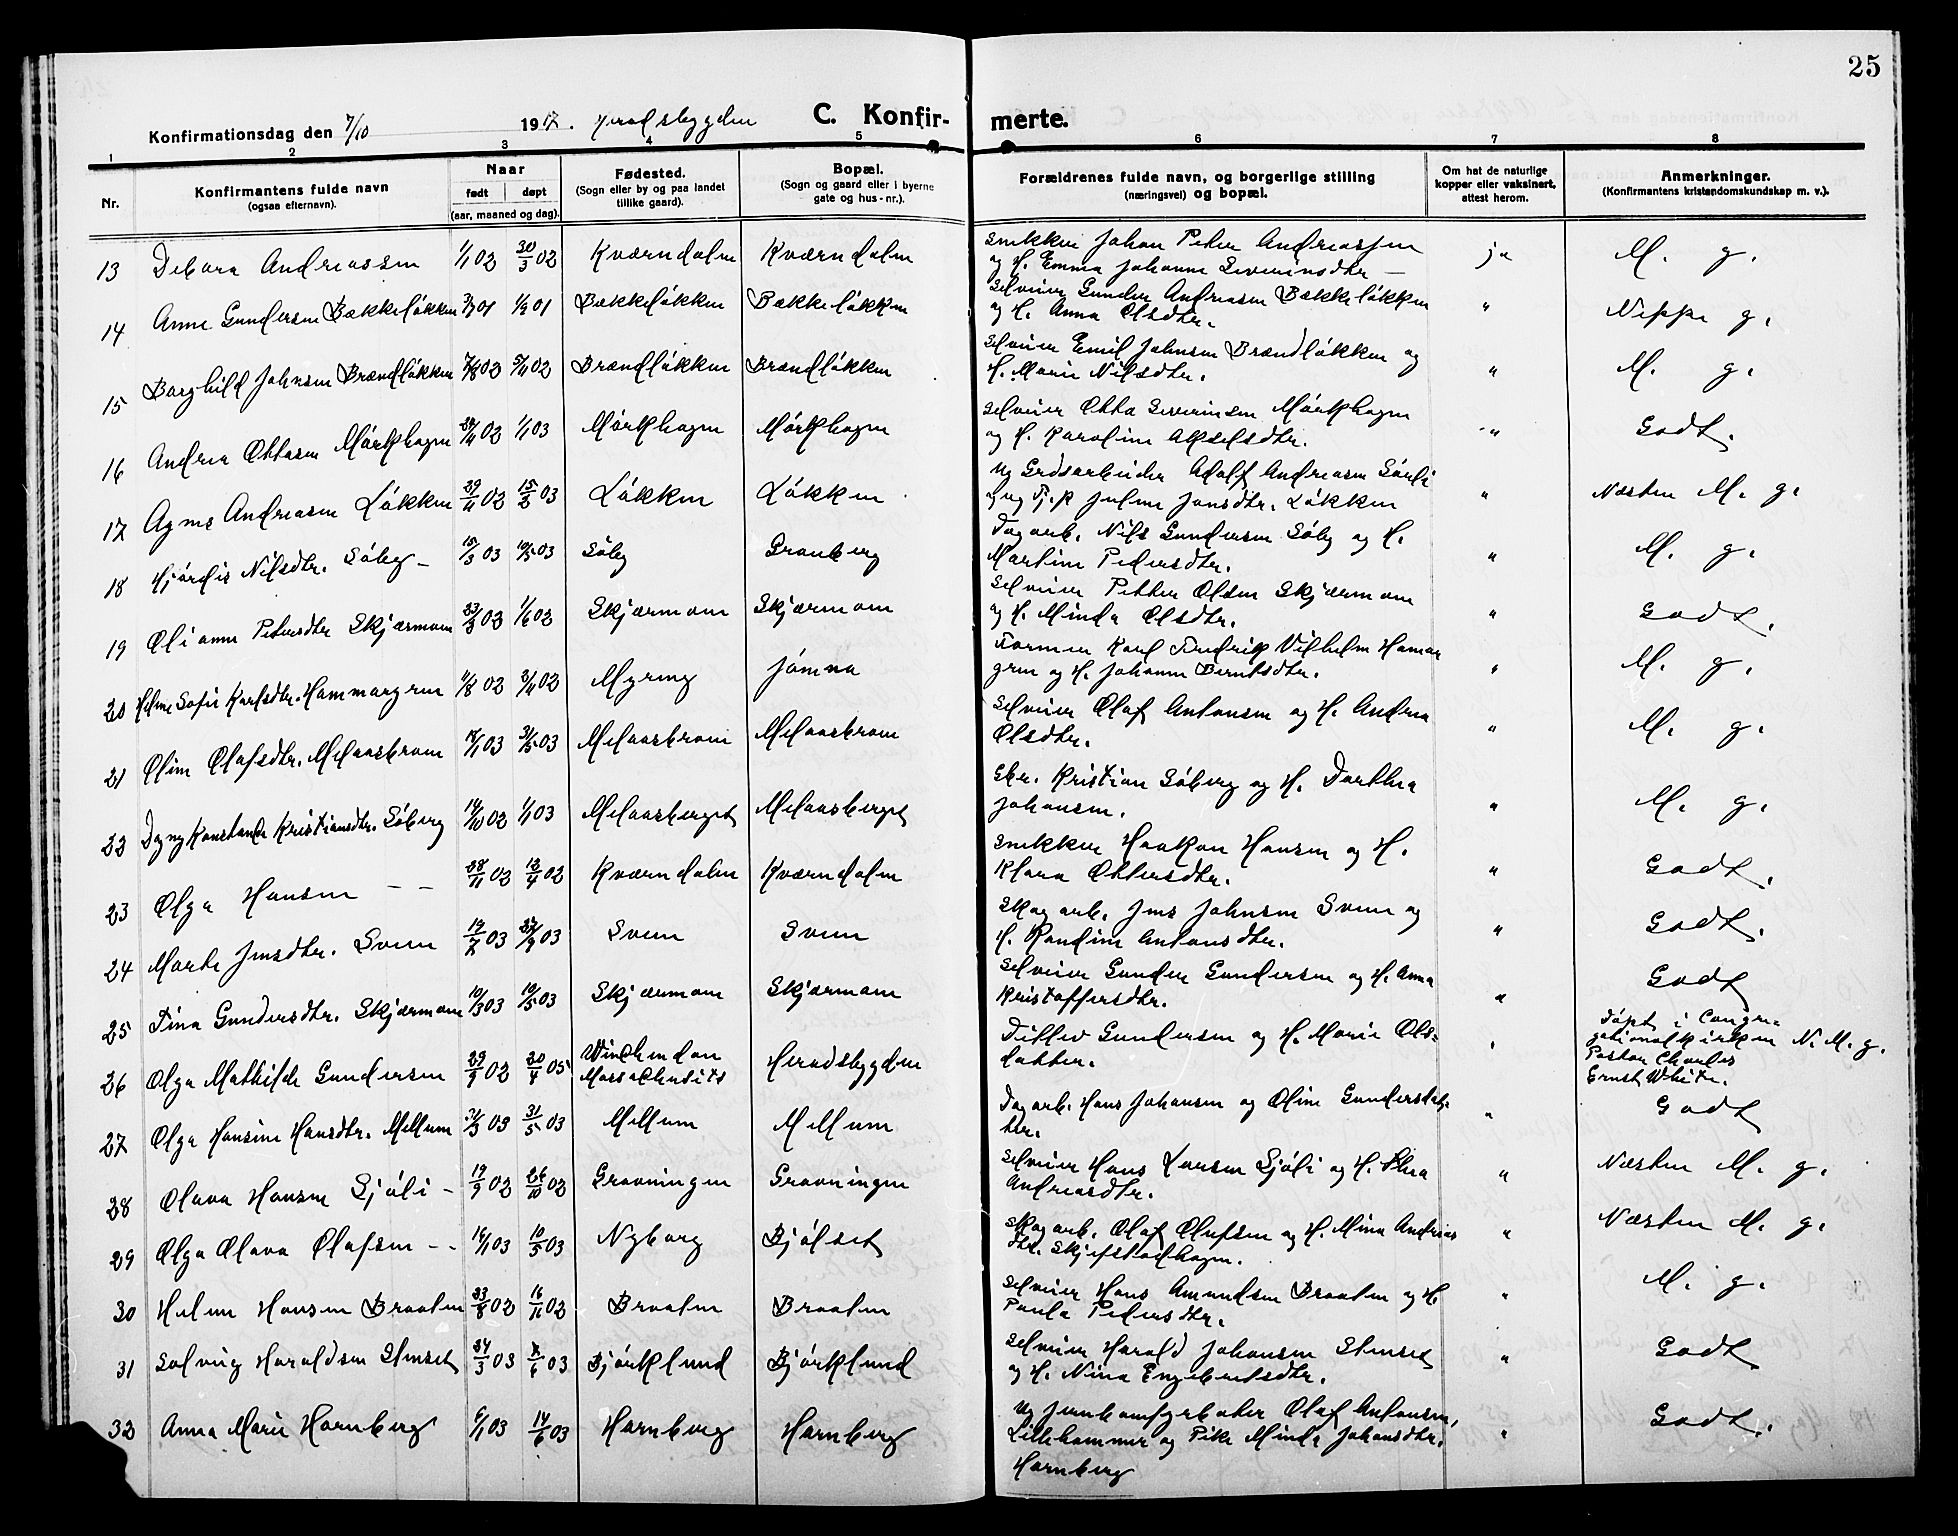 25
Konfirmationsdag den 7/10 1917. Heradsbygden C. Konfirmerte.
1 2 3 4 5 6 7 8
Nr. Konfirmantens fulde navn (ogsaa efternavn). Naar født døpt (aar, maaned og dag). Fødested. (Sogn eller by og paa landet tillike gaard). Bopæl. (Sogn og gaard eller i byerne gate og hus-nr.). Forældrenes fulde navn, og borgerlige stilling (næringsvei) og bopæl. Om hat de naturlige kopper eller vaksinert, attest herom. Anmerkninger. (Konfirmantens kristendomskundskap m. v.).
13 Debora Andreassen 1/1 02 30/3 02 Kværndalen Kværndalen Snekker Johan Peter Andreassen ja M. g.
og H. Emma Johanne Severinsdtr —
14 Anne Gundersen Bækkeløkken 01 01 Bækkeløkken Bækkeløkken Selveier Gunder Andreasen Bækkeløkken " Neppe g.
og H. Anna Olsdtr.
15 Borghild Johnsen Brændløkken 7/8 02 5/4 02 Brændløkken Brændløkken Selveier Emil Johnsen Brændløkken og " M. g.
H. Marie Nilsdtr.
16 Andrea Ottosen Mørkhagen 02 1/1 03 Mørkhagen Mørkhagen Selveier Otto Severinsen Mørkhagen " Godt.
og H. Karoline Akselsdtr.
17 Agnes Andreasen Løkken 29/11 02 15/2 03 Løkken Løkken Ug Grdsarbeider Adolf Andreasen Sørli " Næsten M. g.
og ug Pj.p Juline Jonsdtr. Løkken
18 Hjørdis Nilsdtr. Søby – 15/3 03 10/5 03 Søby Granberg Dagarb. Nils Gundersen Søby og H. " M. g.
Martine Pedersdtr.
19 Olianne Petersdtr Skjærmoen 23/3 03 1/6 02 Skjærmoen Skjærmoen Selveier Petter Olsen Skjærmoen " Godt.
og H. Minda Olsdtr.
20 Helene Sofie Karlsdtr. Hammargren 11/8 02 02 Myring Jømna Former Karl Fredrik Vilhelm Hamar " M. g.
gren og H. Johanne Berntsdtr.
21 Oline Olafsdtr. Melaasbraaen 14/1 03 31/5 03 Melaasbraaen Melaasbraaen Selveier Olaf Antonsen og H. Andrea " M. g.
Olsdtr.
22 Dagny Konstance Kristiansdtr. Søberg 14/10 02 1/1 03 Melaasberget Melaasberget Gbr. Kristian Søberg og H. Dorthea " M. g.
Johansen.
23 Olga Hansen – – 28/11 02 13/4 02 Kværndalen Kværndalen Snekker Haakon Hansen og H. " Godt.
Klara Ottersdtr.
24 Marte Jensdtr. Sveen 03 27/9 03 Sveen Sveen Skogarb. Jens Johnsen Sveen og " Godt.
H. Randine Antonsdtr.
25 Tina Gundersdtr. Skjærmoen 10/3 03 10/5 03 Skjærmoen Skjærmoen Selveier Gunder Gundersen og H. Anna " Godt
Kristoffersdtr.
26 Olga Mathilde Gundersen 29/9 02 20/4 05 Winchendon Massachusits Heradsbygden Ditlev Gundersen og H. Marie Ols= " Døpt i Congre= N. M. g.
datter. gationalkirken Pastor Charles Ernst White.
27 Olga Hansine Hansdtr. Mellum 03 31/5 03 Mellum Mellum Dagarb. Hans Johansen og Oline Gundersdat= " Godt
ter.
28 Olava Hansen Sjøli – 19/9 02 26/10 02 Gravningen Gravningen Selveier Hans Larsen Sjøli og H. Thea " Næsten M. g.
Andreasdtr.
29 Olga Olava Olafsen – – 14/1 03 10/5 03 Nyborg Bjølset Skogarb. Olaf Olufsen og H. Mina Andreas " Næsten M. g.
dtr. Skjefstadhagen.
30 Helene Hansen Braaten 23/8 02 16/11 02 Braaten Braaten Selveier Hans Amundsen Braaten og H. " M. g.
Paula Pedersdtr.
31 Solveig Haraldsen Stenset 24/3 03 03 Bjørklund Bjørklund Selveier Harald Johansen Stenset " Godt
og H. Nina Engebretsdtr.
32 Anna Marie Hornberg 6/1 03 14/6 03 Hornberg Hornberg Ug Jernbanfyrbøter Olaf Antonsen, " Godt.
Lillehammer og Pike Minda Johansdtr.
Hornberg